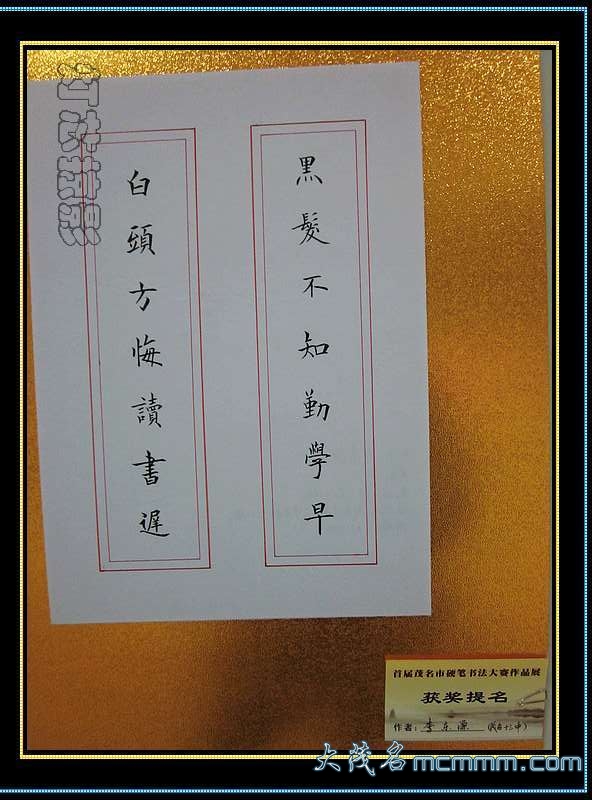 黑髮不知勤學早
白頭方悔讀書遲
首届茂名市硬笔书法大赛作品展
获奖提名
作者：李东源
大茂名mcmmm.com